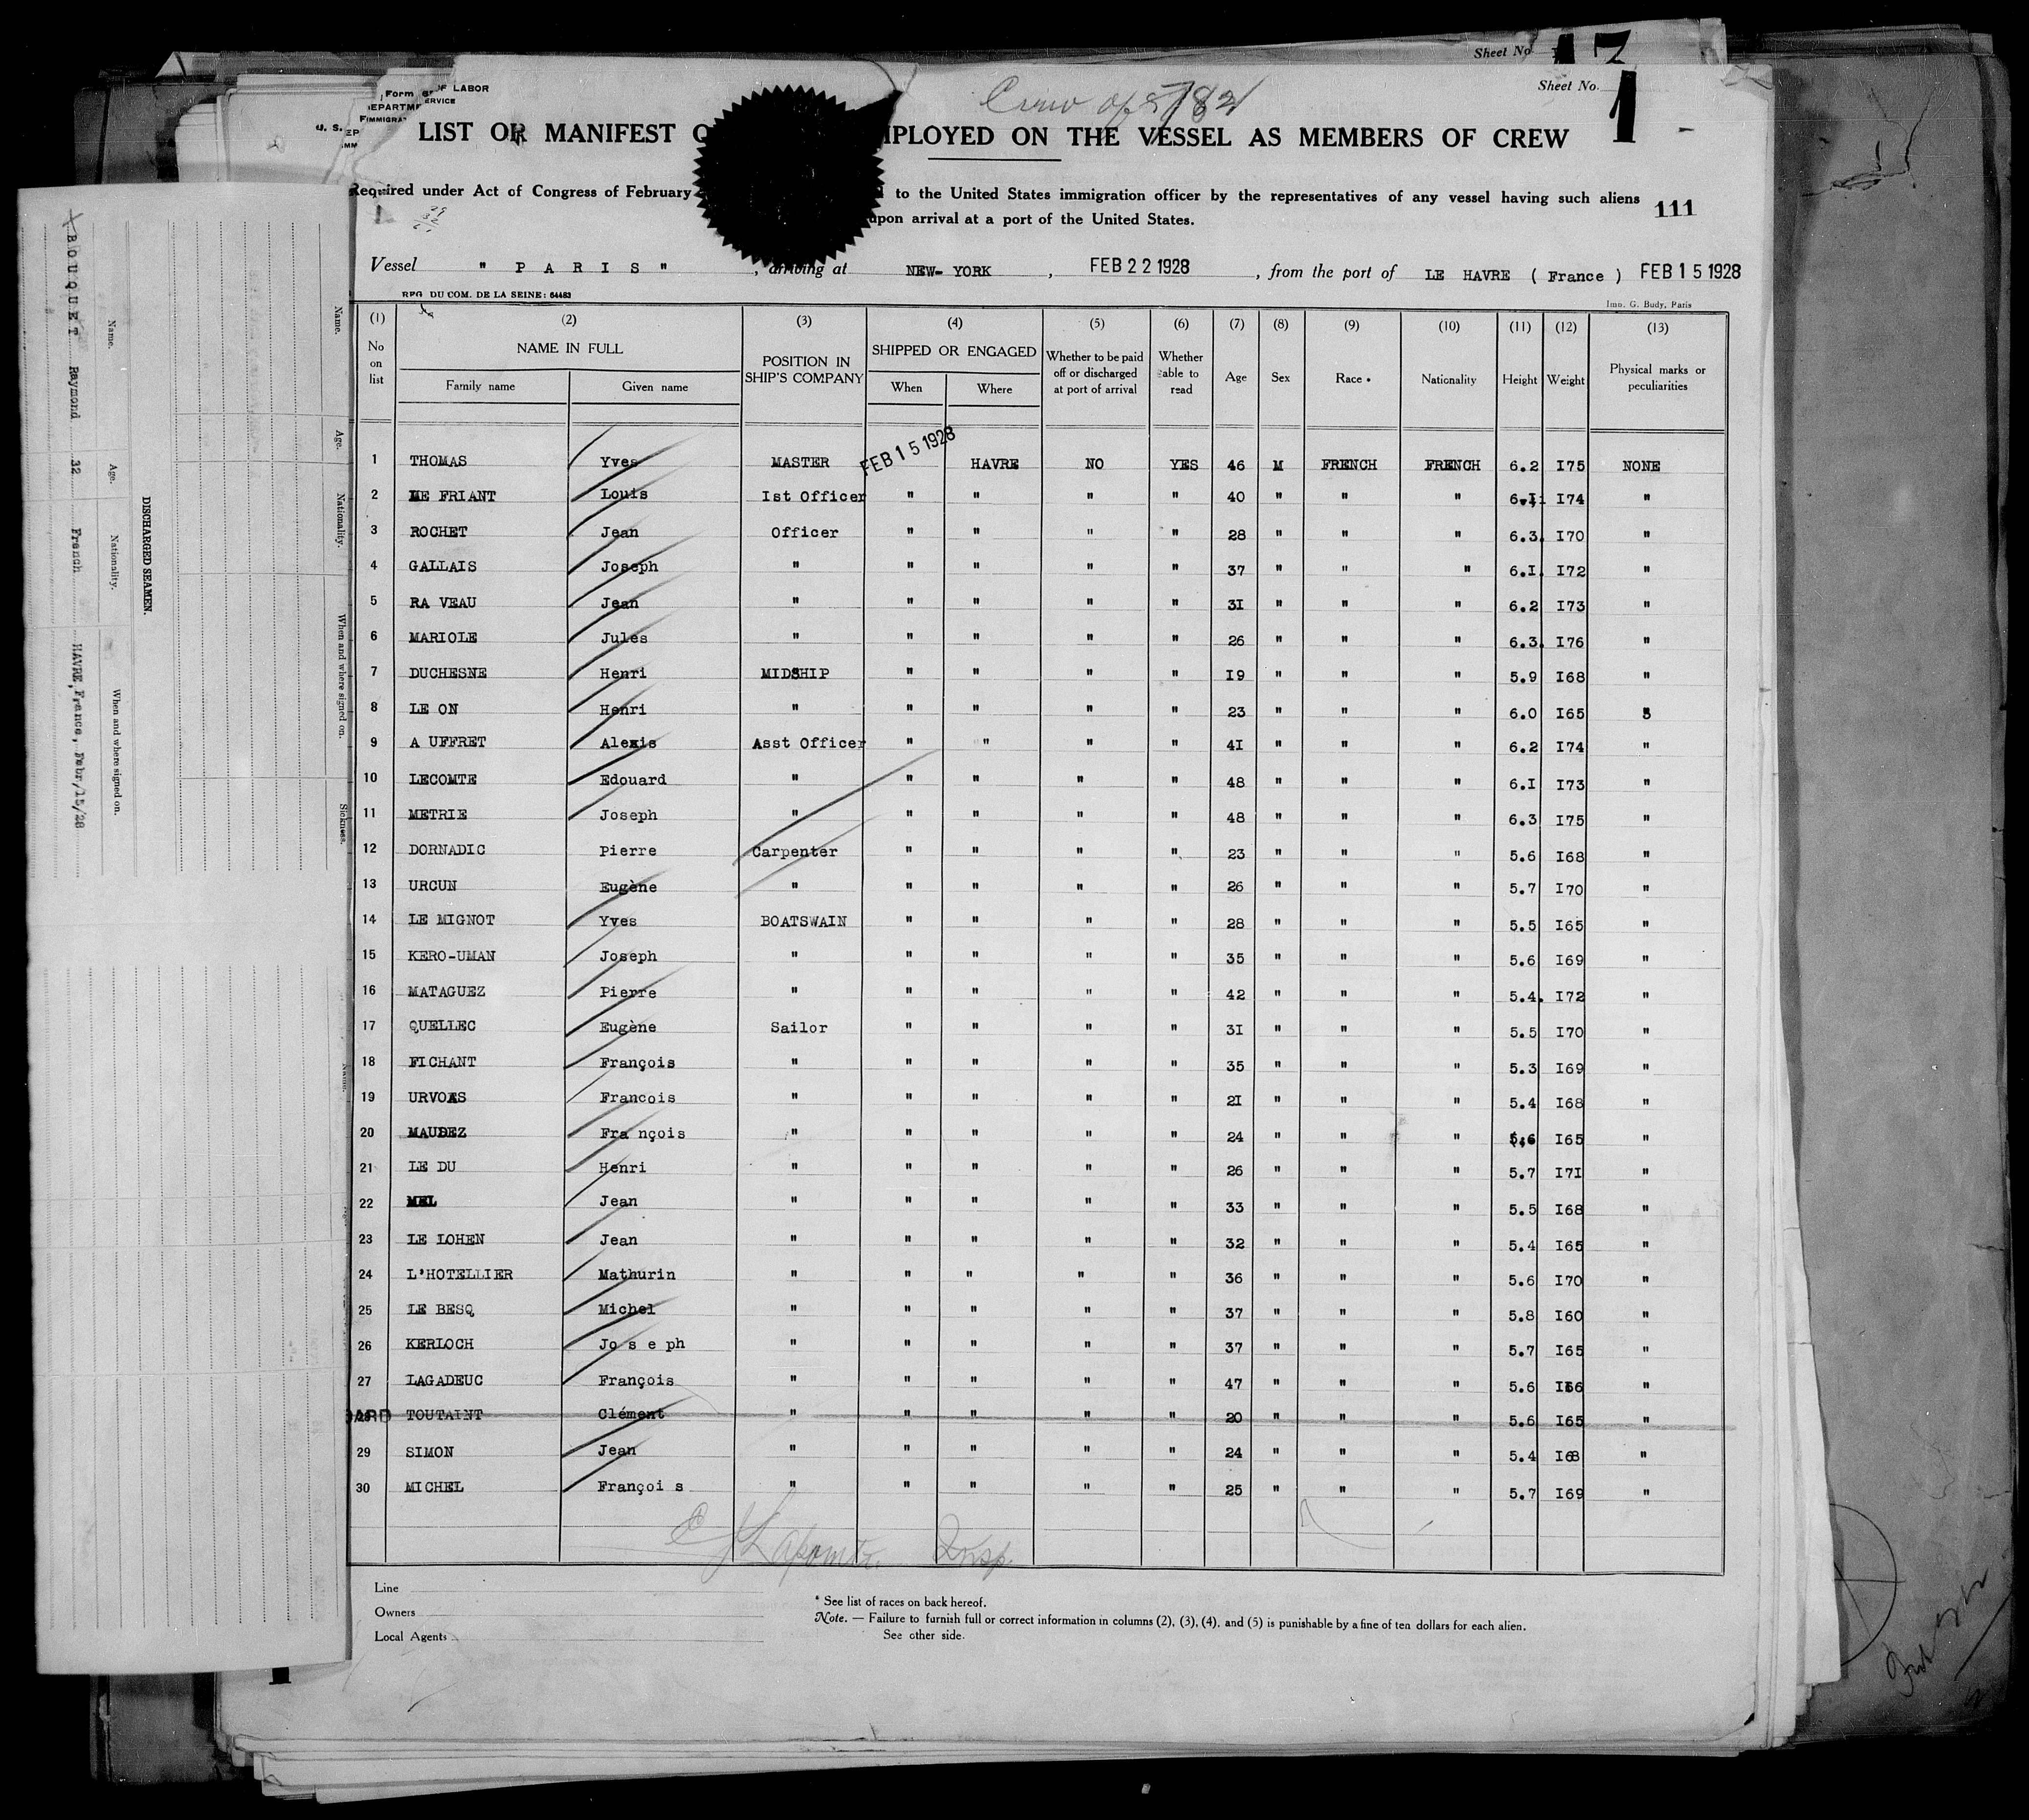 Sheet No
Sheet No. 1
Crew of 782
Form
OF LABOR
DEPARTME
SERVICE
IMMIGRA
U. S.
LIST OR MANIFEST O MPLOYED ON THE VESSEL AS MEMBERS OF CREW
Required under Act of Congress of February to the United States immigration officer by the representatives of any vessel having such aliens
upon arrival at a port of the United States.
111
Vessel " P A R I S " , arriving at NEW- YORK , FEB 22 1928 , from the port of LE HAVRE ( France ) FEB 15 1928
REG. DU COM. DE LA SEINE: 64483
Imp. G. Budy, Paris
(1) (2) (3) (4) (5) (6) (7) (8) (9) (10) (11) (12) (13)
No on list NAME IN FULL POSITION IN SHIP'S COMPANY SHIPPED OR ENGAGED Whether to be paid off or discharged at port of arrival Whether able to read Age Sex Race • Nationality Height Weight Physical marks or peculiarities
Family name Given name When Where
1 THOMAS Yves MASTER FEB 15 1928 HAVRE NO YES 46 M FRENCH FRENCH 6.2 I75 NONE
2 LE FRIANT Louis Ist Officer " " " " 40 " " " 6.I I74 "
3 ROCHET Jean Officer " " " " 28 " " " 6.3. I70 "
4 GALLAIS Joseph " " " " " 37 " " " 6.I. I72 "
5 RA VEAU Jean " " " " " 3I " " " 6.2 I73 "
6 MARIOLE Jules " " " " " 26 " " " 6.3. I76 "
7 DUCHESNE Henri MIDSHIP " " " " I9 " " " 5.9 I68 "
8 LE ON Henri " " " " " 23 " " " 6.0 I65 "
9 A UFFRET Alexis Asst Officer " " " " 4I " " " 6.2 I74 "
10 LECOMTE Edouard " " " " " 48 " " " 6.I I73 "
11 METRIE Joseph " " " " " 48 " " " 6.3 I75 "
12 DORNADIC Pierre Carpenter " " " " 23 " " " 5.6 I68 "
13 URCUN Eugène " " " " " 26 " " " 5.7 I70 "
14 LE MIGNOT Yves BOATSWAIN " " " " 28 " " " 5.5 I65 "
15 KERO-UMAN Joseph " " " " " 35 " " " 5.6 I69 "
16 MATAGUEZ Pierre " " " " " 42 " " " 5.4. I72 "
17 QUELLEC Eugène Sailor " " " " 3I " " " 5.5 I70 "
18 FICHANT François " " " " " 35 " " " 5.3 I69 "
19 URVOAS Francois " " " " " 2I " " " 5.4 I68 "
20 MAUDEZ Fra nçois " " " " " 24 " " " 5.6 I65 "
21 LE DU Henri " " " " " 26 " " " 5.7 I7I "
22 MEL Jean " " " " " 33 " " " 5.5 I68 "
23 LE LOHEN Jean " " " " " 32 " " " 5.4 I65 "
24 L'HOTELLIER Mathurin " " " " " 36 " " " 5.6 I70 "
25 LE BESQ Michel " " " " " 37 " " " 5.8 I60 "
26 KERLOCH Jo s e ph " " " " " 37 " " " 5.7 I65 "
27 LAGADEUC François " " " " " 47 " " " 5.6 I66 "
28 TOUTAINT Clément " " " " " 20 " " " 5.6 I65 "
29 SIMON Jean " " " " " 24 " " " 5.4 I68 "
30 MICHEL Françoi s " " " " " 25 " " " 5.7 I69 "
Insp.
Line
Owners
Local Agents
* See list of races on back hereof.
Note. — Failure to furnish full or correct information in columns (2), (3), (4), and (5) is punishable by a fine of ten dollars for each alien.
See other side.
DISCHARGED SEAMEN.
Name. Age. Nationality. When and where signed on.
X BOUQUET Raymond 32 French HAVRE, France, Febr/15/28
Name. Age. Nationality. When and where signed on. Sickness.